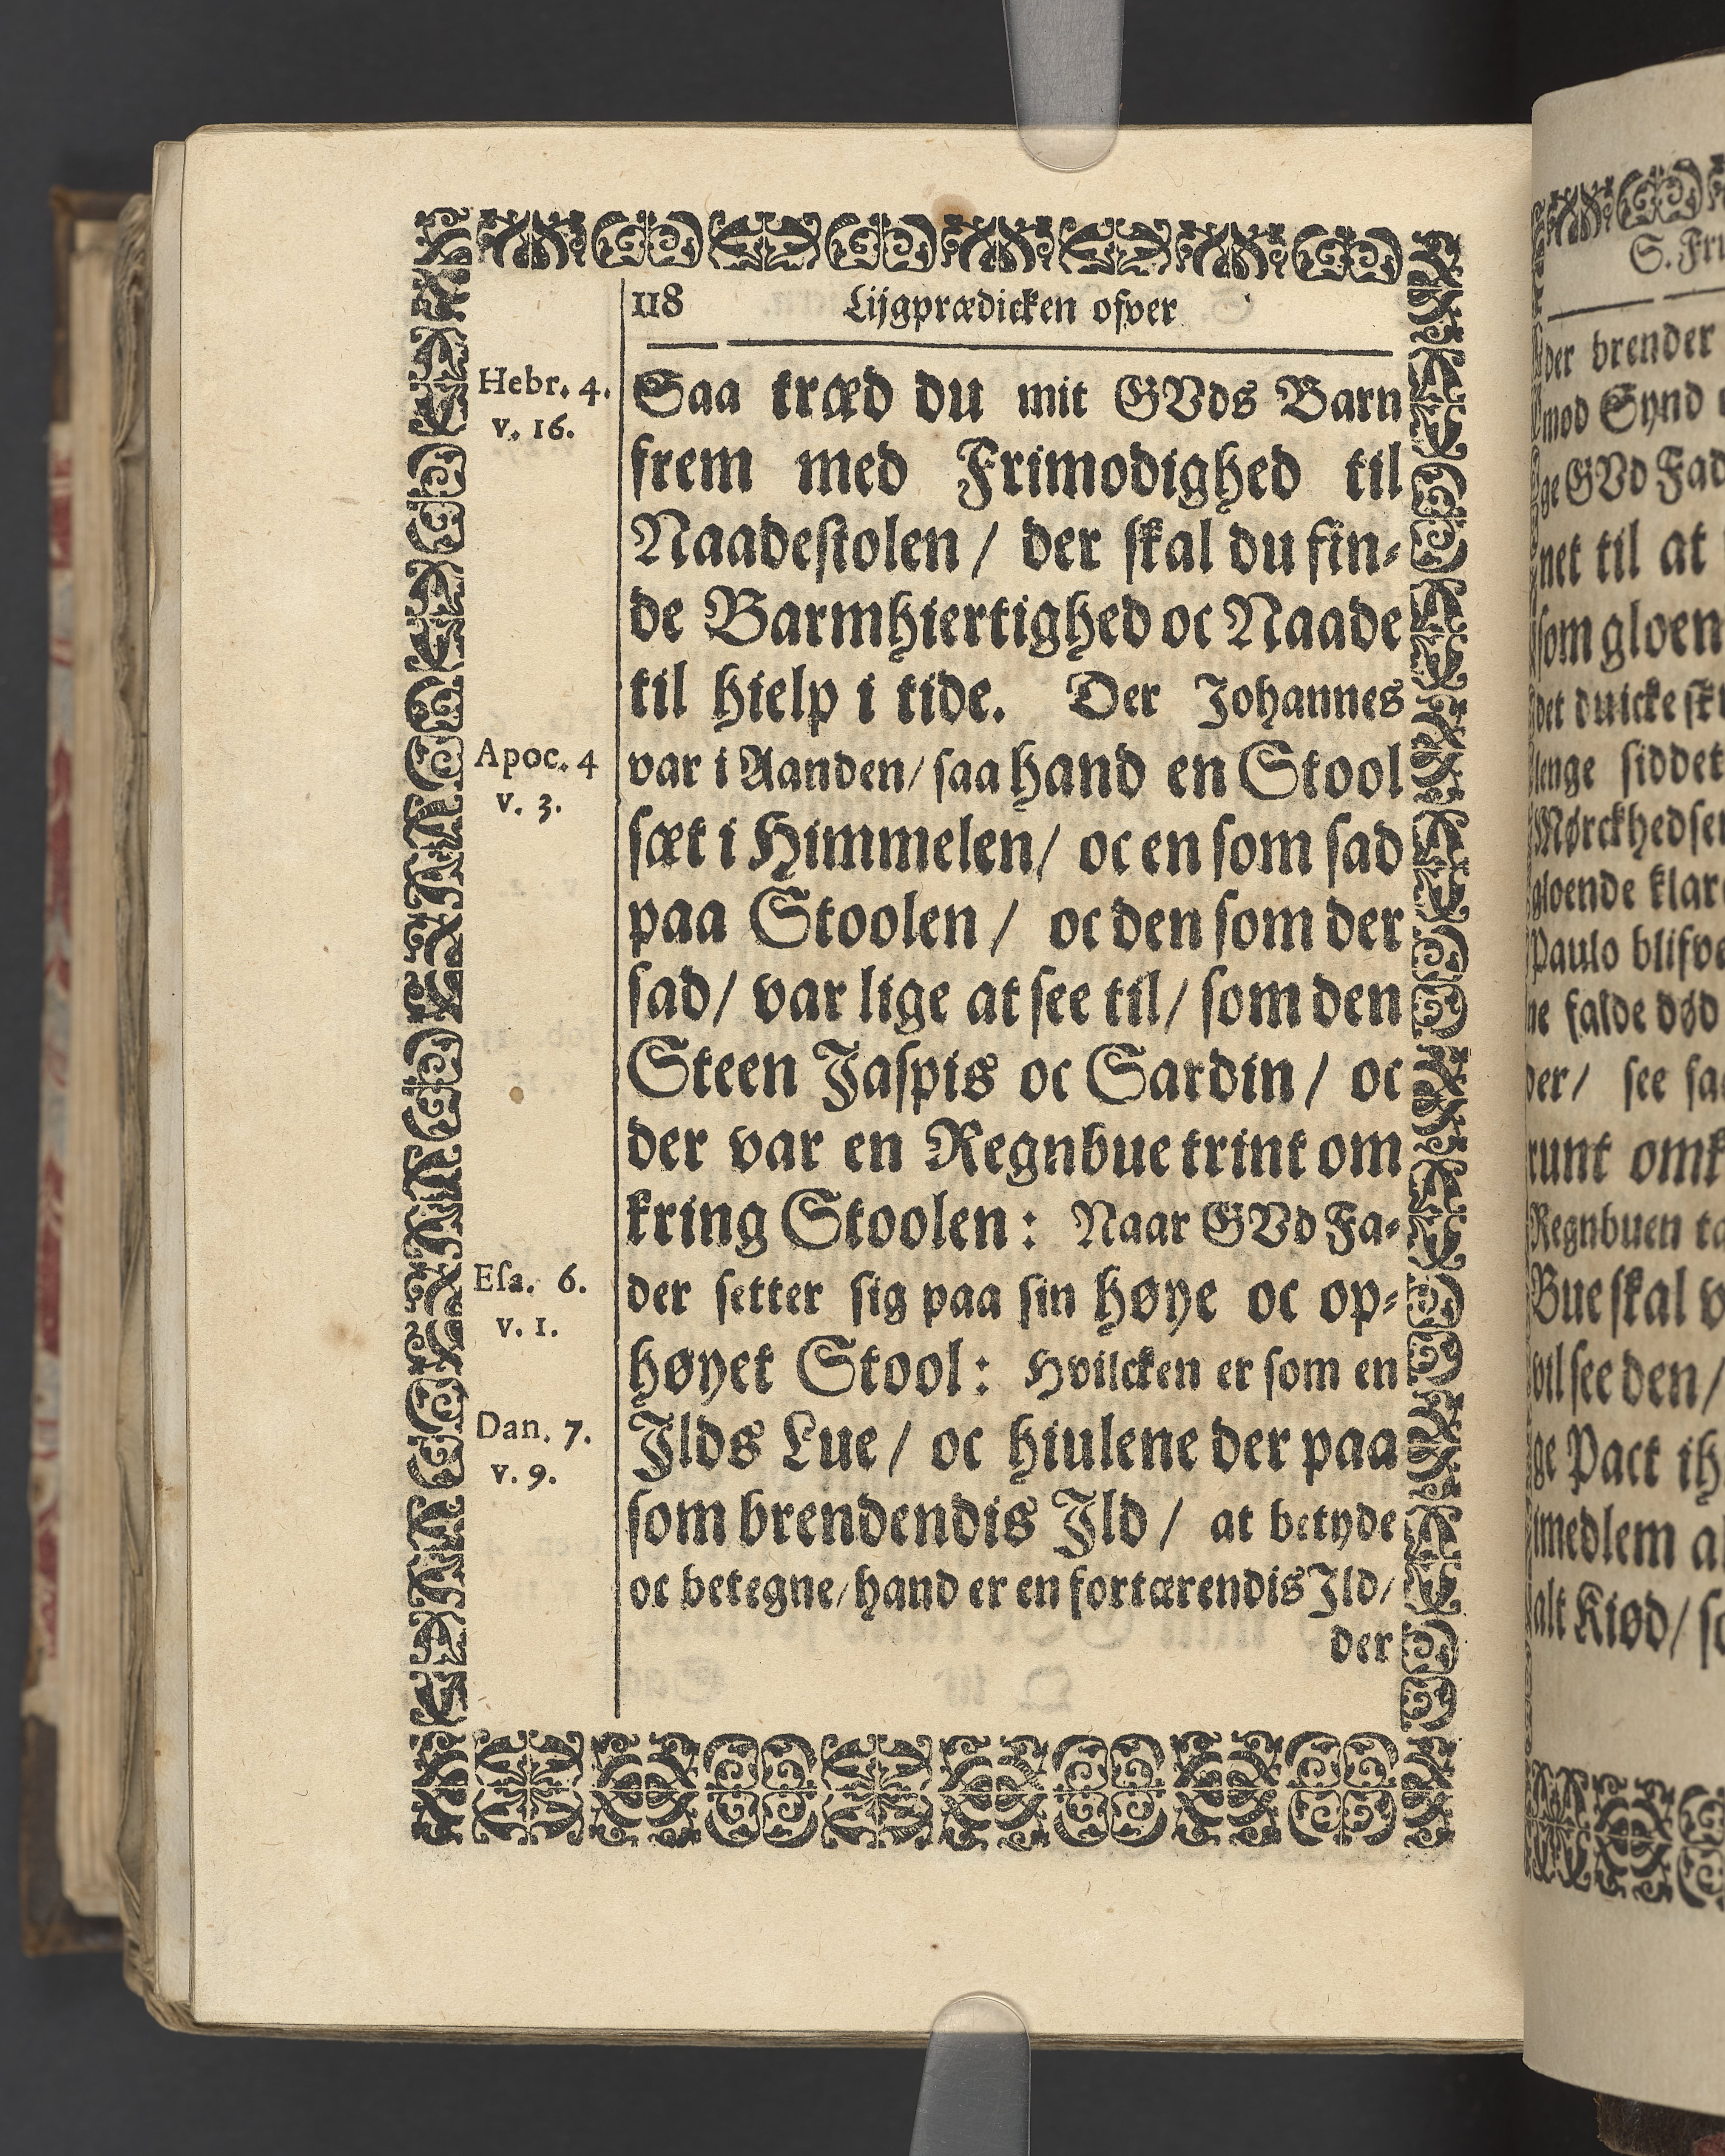 118 Lijgprædicken ofver
Hebr. 4.
v. 16.
Saa træd du mit GVds Barn
frem med Frimodighed til
Naadestolen / der skal du fin-
de Barmhiertighed oc Naade
til hielp i tide. Der Johannes
Apoc. 4
v. 3.
var i Aanden / saa hand en Stool
sæt i Himmelen / oc en som sad
paa Stoolen / oc den som der
sad / var lige at see til / som den
Steen Jaspis oc Sardin / oc
der var en Regnbue trint om
kring Stoolen: Naar GVd Fa-
Esa. 6.
v. 1.
der setter sig paa sin høye oc op-
høyet Stool: Hvilcken er som en
Dan. 7.
v. 9.
Jlds Lue / oc hiulene der paa
som brendendis Jld / at betyde
oc betegne / hand er en fortærendis Jld /
der
S. Fri
der brender
mod Synd
ge GVd Fad
net til at
som gloen
det duicke
lenge siddet
Mørckhedsen
gloende klar
Paulo blifve
ne falde død
der / see saa
runt omk
Regnbuen ta
Bue skal v
vil see den /
ge Pact ih
imedlem al
alt Kiød / so